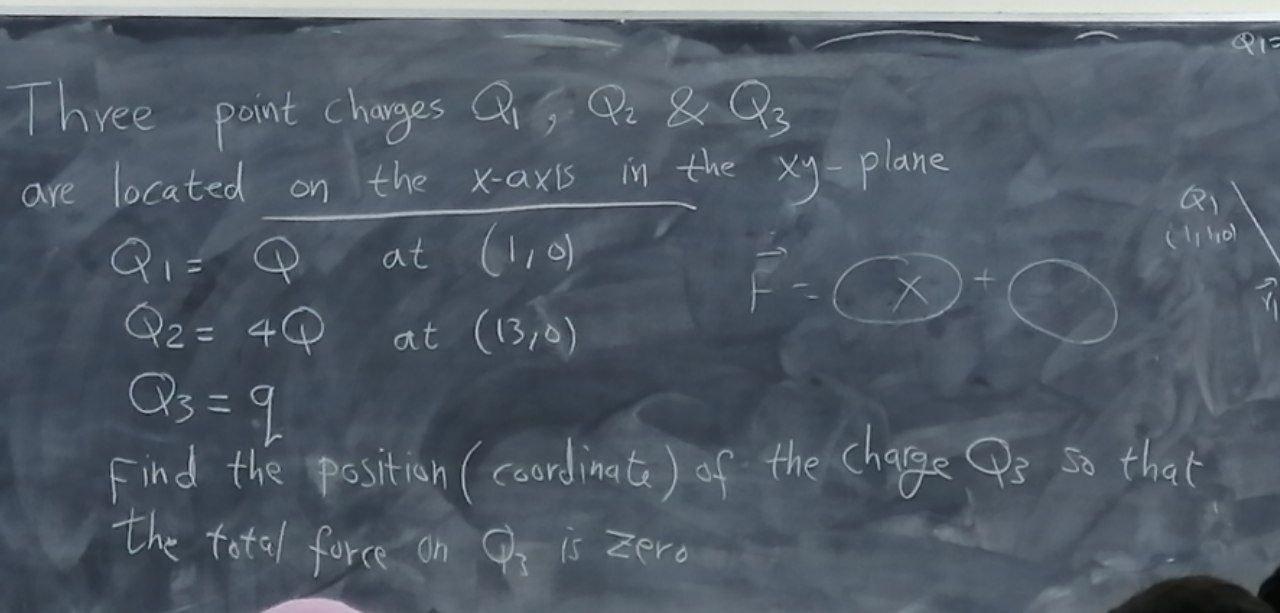 Three point charges Q1, Q2 & Q3
are located on the x-axis in the xy-plane
Q1 = Q at (1,0)
Q2 = 4Q at (13,0)
Q3 = q
Find the position (coordinate) of the charge Q3 so that
the total force on Q3 is zero
F = x +
Q1=
Q1